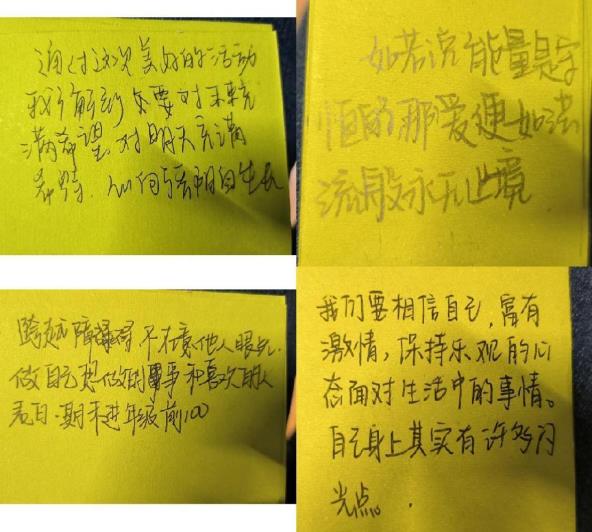 通过这次美好的活动
我了解到 要对未来充
满希望 对明天充满
向阳的生长
如若说能量是守
恒的那爱便如洪
流般永无止境
跨越障碍 不在意他人眼光.
做自己想做的事和喜欢的人
表白.期末进年级前100
我们要相信自己,富有
激情,保持乐观的心
态面对生活中的事情。
自己身上其实有许多闪
光点。